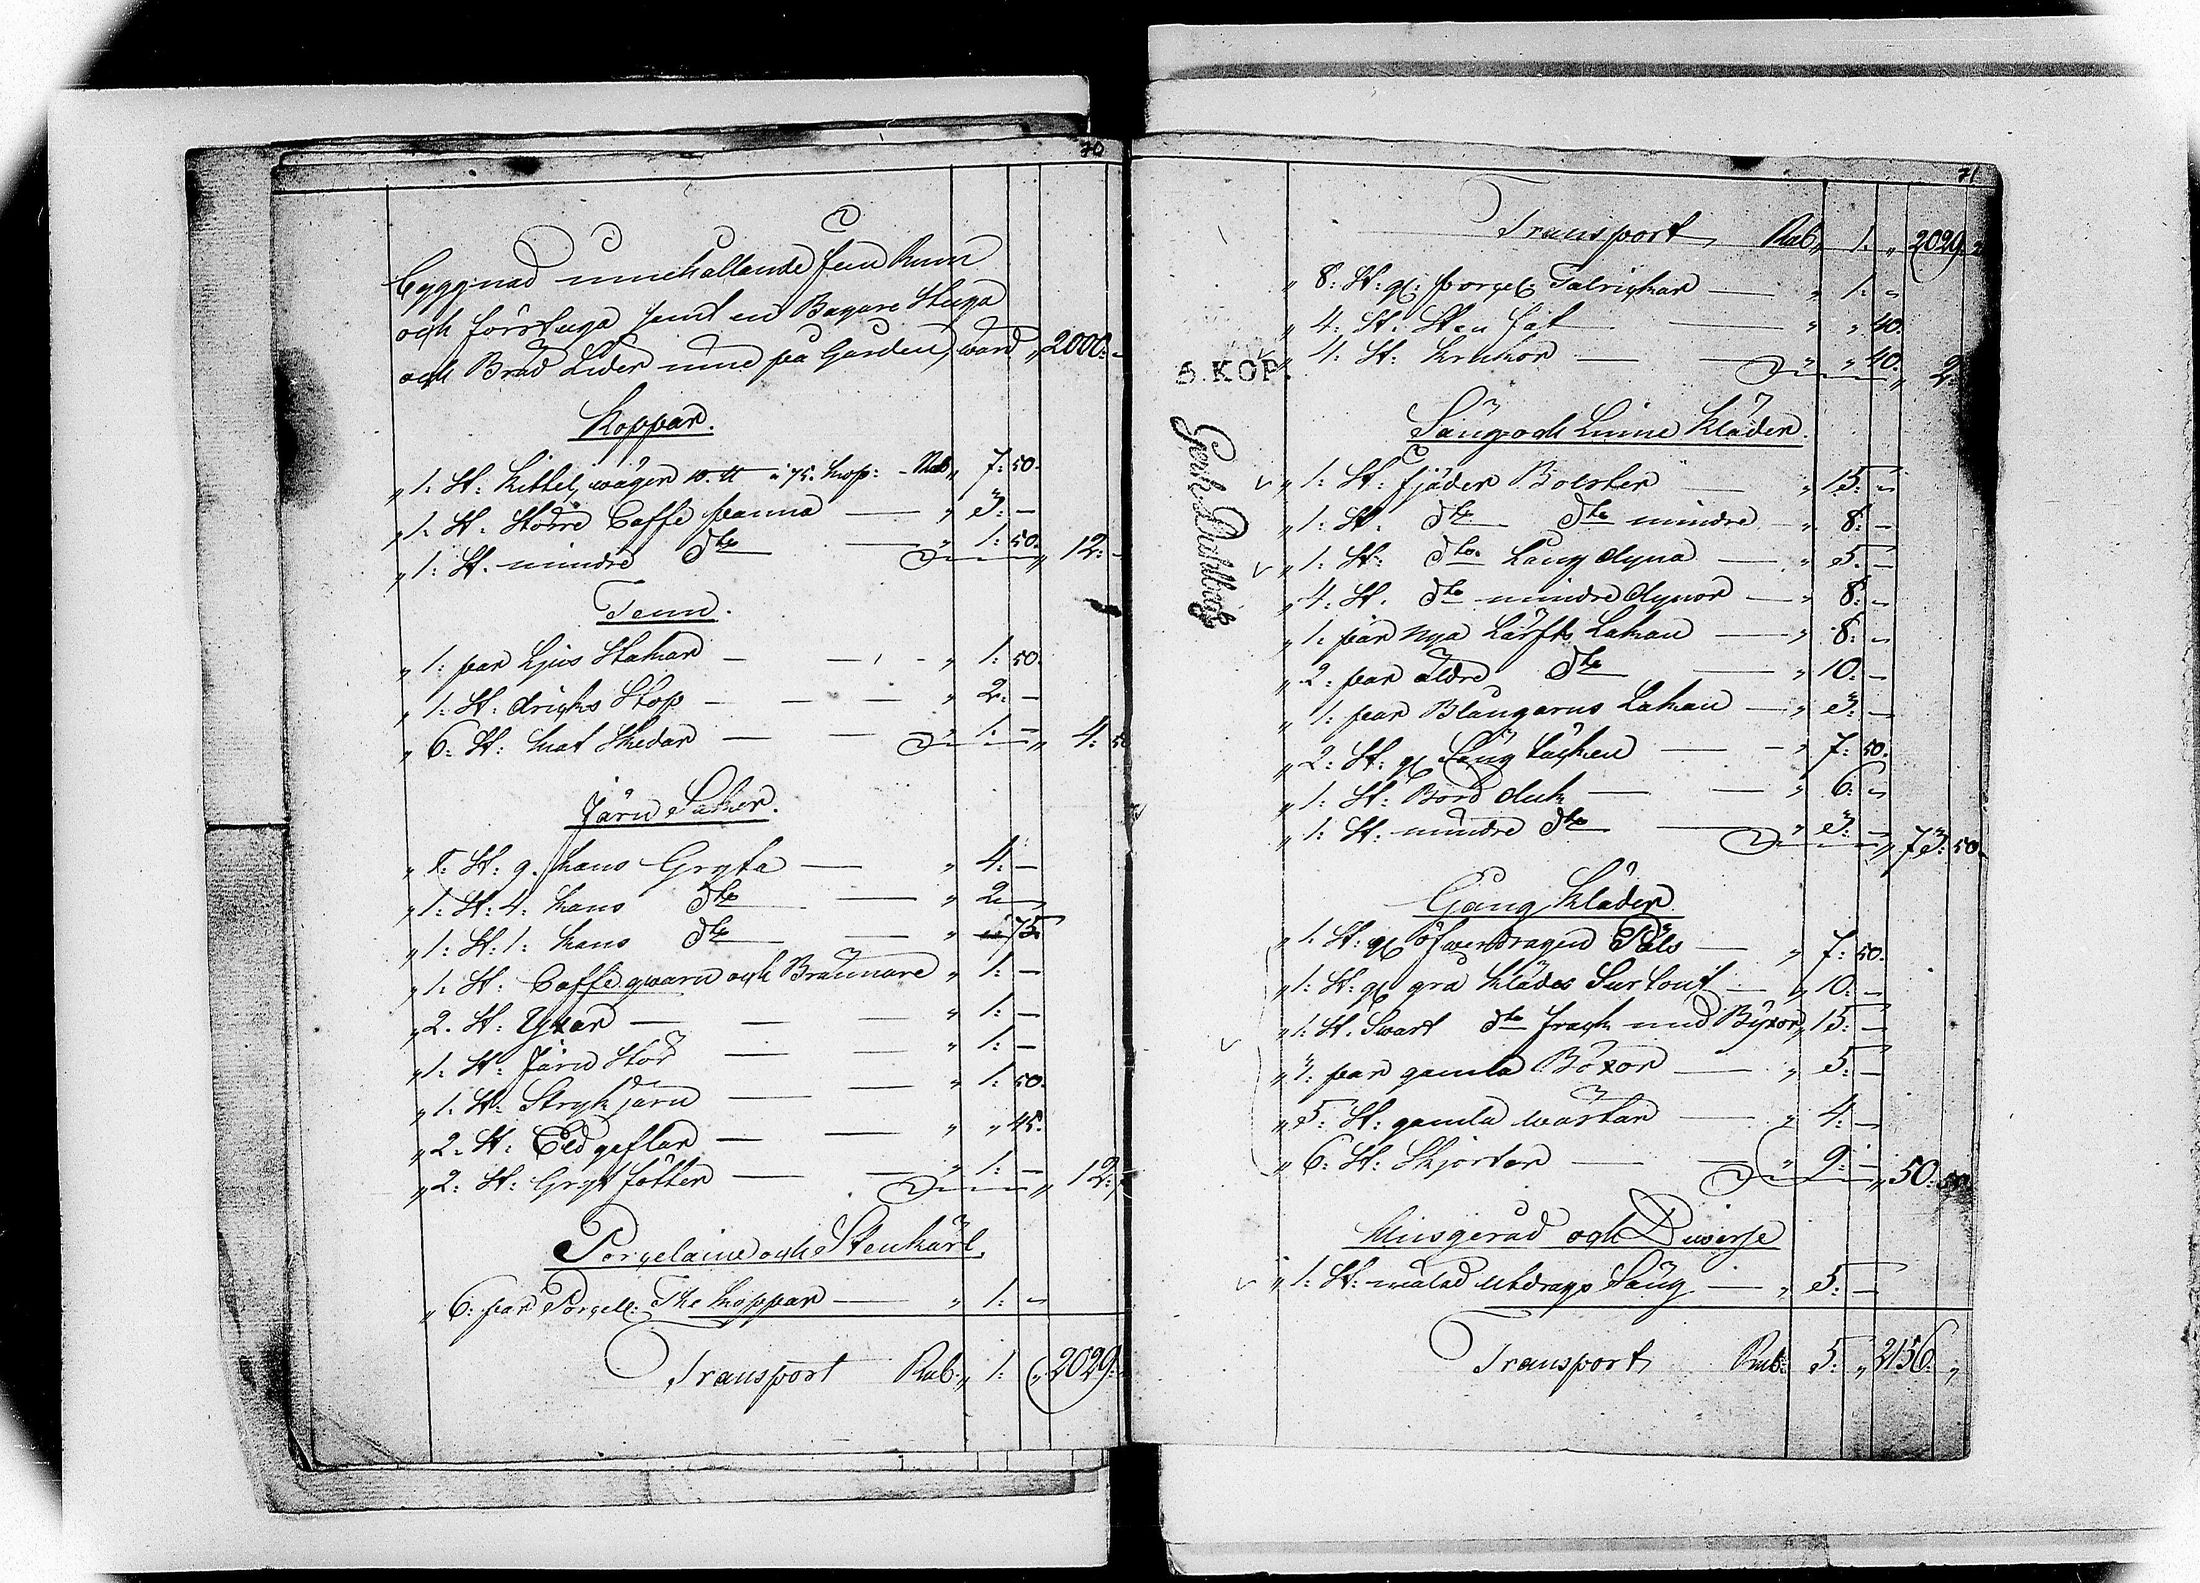 70
byggnad innehållande fem Rum
och förstuga samt en Bagare Stuga
och Bräd Lider inne på Gården, värd „ 2000: —
Koppar.
„ 1: St: Kittel, wäger 10. ℔ à 75. kop: - Rub „ 7: 50.
„ 1: St. Större Caffe panna — „ 3: —
„ 1: St. mindre dto — „ 1: 50. „ 12: —
Tenn.
„ 1: par Ljus Stakar — „ 1: 50.
„ 1: St: dricks Stop — „ 2: —
„ 6: St: Mat Skedar — „ 1: — „ 4: 50
Järn Saker.
„ 1: St: 9. Kans Gryta — „ 4: —
„ 1: St: 4: Kans dto — „ 2 —
„ 1: St: 1: Kans dto — „ 75.
„ 1: St: Caffe qwarn och Brännare „ 1: —
„ 2. St: Yxar — „ 1: —
„ 1: St: Järn Stör — „ 1: —
„ 1: St: Stryk järn — „ 1: 50.
„ 2: St: Eld gaflar — „ „ 45.
„ 2: St: Gryt fötter — „ 1: — „ 12:
Porcelaine och Stenkärl.
„ 6: par Porcell: The koppar — „ 1: —
Transport Rub. „ 1: „ 2029:
71
Transport Rub „ 1: „ 2029: 2
„ 8: St: gl: porcel: Talrickar — „ 1: —
„ 4: St: Sten fat — „ „ 40.
„ 4: St: Krukor — „ „ 40. „ 2:
5. KOP.
Säng och Linne Kläder.
„ 1: St: fjäder Bolster — „ 15: —
„ 1: St. dto dto mindre „ 8: —
„ 1: St: dto Lång dyna — „ 5: —
„ 4: St. dto mindre dynor — „ 8: —
„ 1: par nya Lärfts Lakan — „ 8: —
„ 2: par äldre dto — „ 10: —
„ 1: par Blångarns Lakan — „ 3: —
„ 2: St: gl Säng täcken — „ 7: 50.
„ 1: St: Bord duk — „ 6: —
„ 1: St: mindre dto — „ 3: — „ 73: 50
Gång Kläder
„ 1: St: gl öfwerdragen Päls — „ 7: 50.
„ 1: St: gl grå Klädes Surtout — „ 10: —
„ 1: St. Swart dto frack med Byxor „ 15: —
„ 1: par gamla Böxor — „ 5: —
„ 5: St: gamla wästar — „ 4: —
„ 6: St: Skjortor — „ 9: — „ 50: 50
Husgeråd och Diverse
„ 1: St: målad Utdrags Säng — „ 5: —
Transport Rub: 5: „ 2156: „